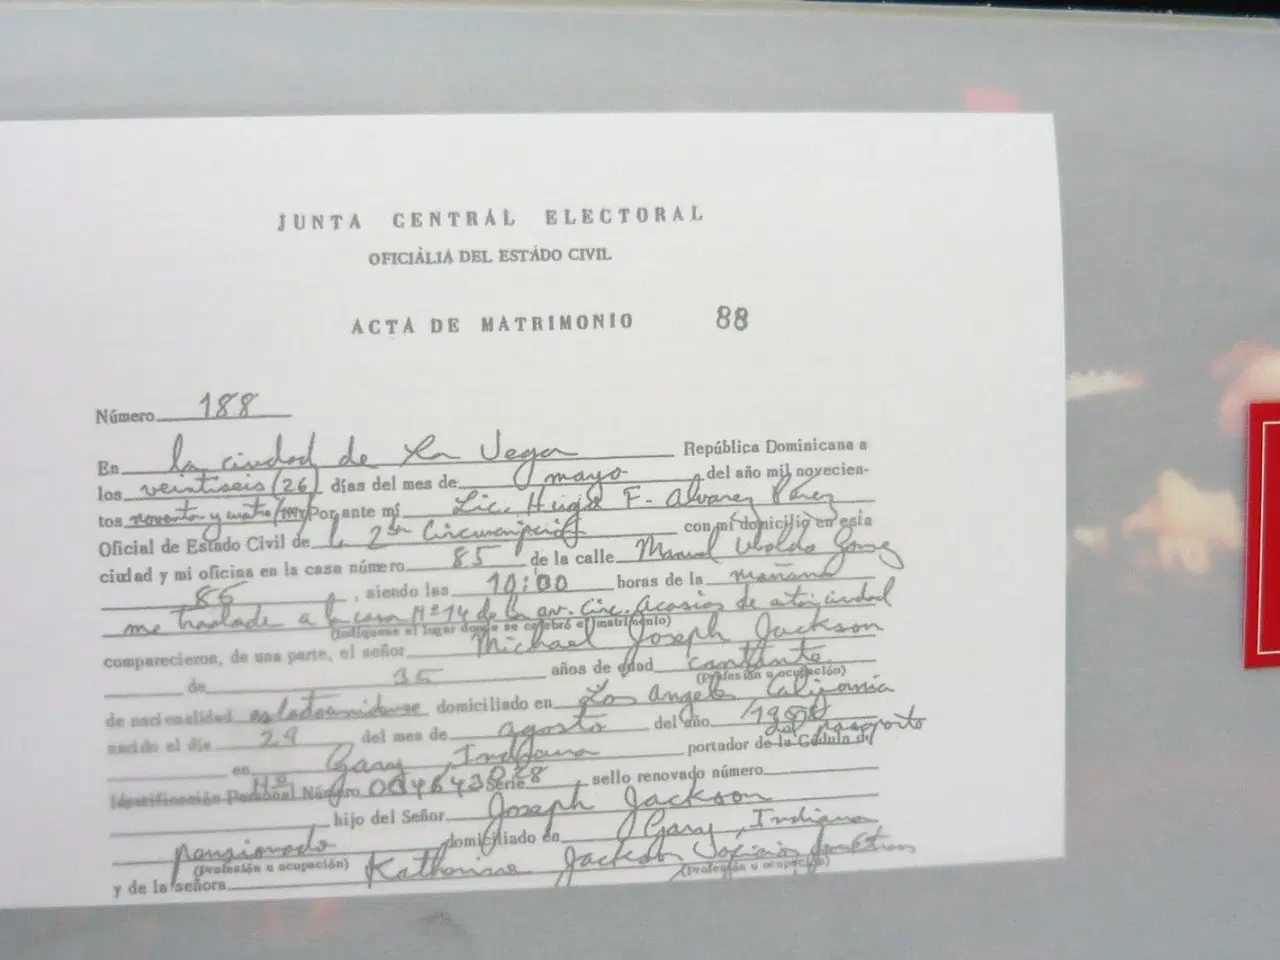 JUNTA CENTRAL ELECTORAL
OFICIALIA DEL ESTADO CIVIL
ACTA DE MATRIMONIO 88
Número 188
En la ciudad de La Vega República Dominicana a
los veintiseis (26) días del mes de mayo del año mil novecien-
tos noventa y cuatro/1994 Por ante mí Lic. Hugo F. Alvarez Pérez
Oficial de Estado Civil de la 2da Circunscripción con mi domicilio en esta
ciudad y mi oficina en la casa número 85 de la calle Manuel Ubaldo Gomez
86, siendo las 10:00 horas de la mañana
me traslade a la casa No 14 de la av. Circ. Acasias de esta ciudad
(Indíquese el lugar donde se celebró el matrimonio)
comparecieron, de una parte, el señor Michael Joseph Jackson
de 35 años de edad cantante
(Profesión u ocupación)
de nacionalidad estadounidense domiciliado en Los Angeles California
nacido el día 29 del mes de agosto del año 1958
en Gary, Indiana portador de la Cédula de del pasaporte
Identificación Personal Número No Serie 8, sello renovado número
hijo del Señor Joseph Jackson
pensionado domiciliado en Gary, Indiana
(Profesión u ocupación)
y de la señora Katherine Jackson
(Profesión u ocupación)